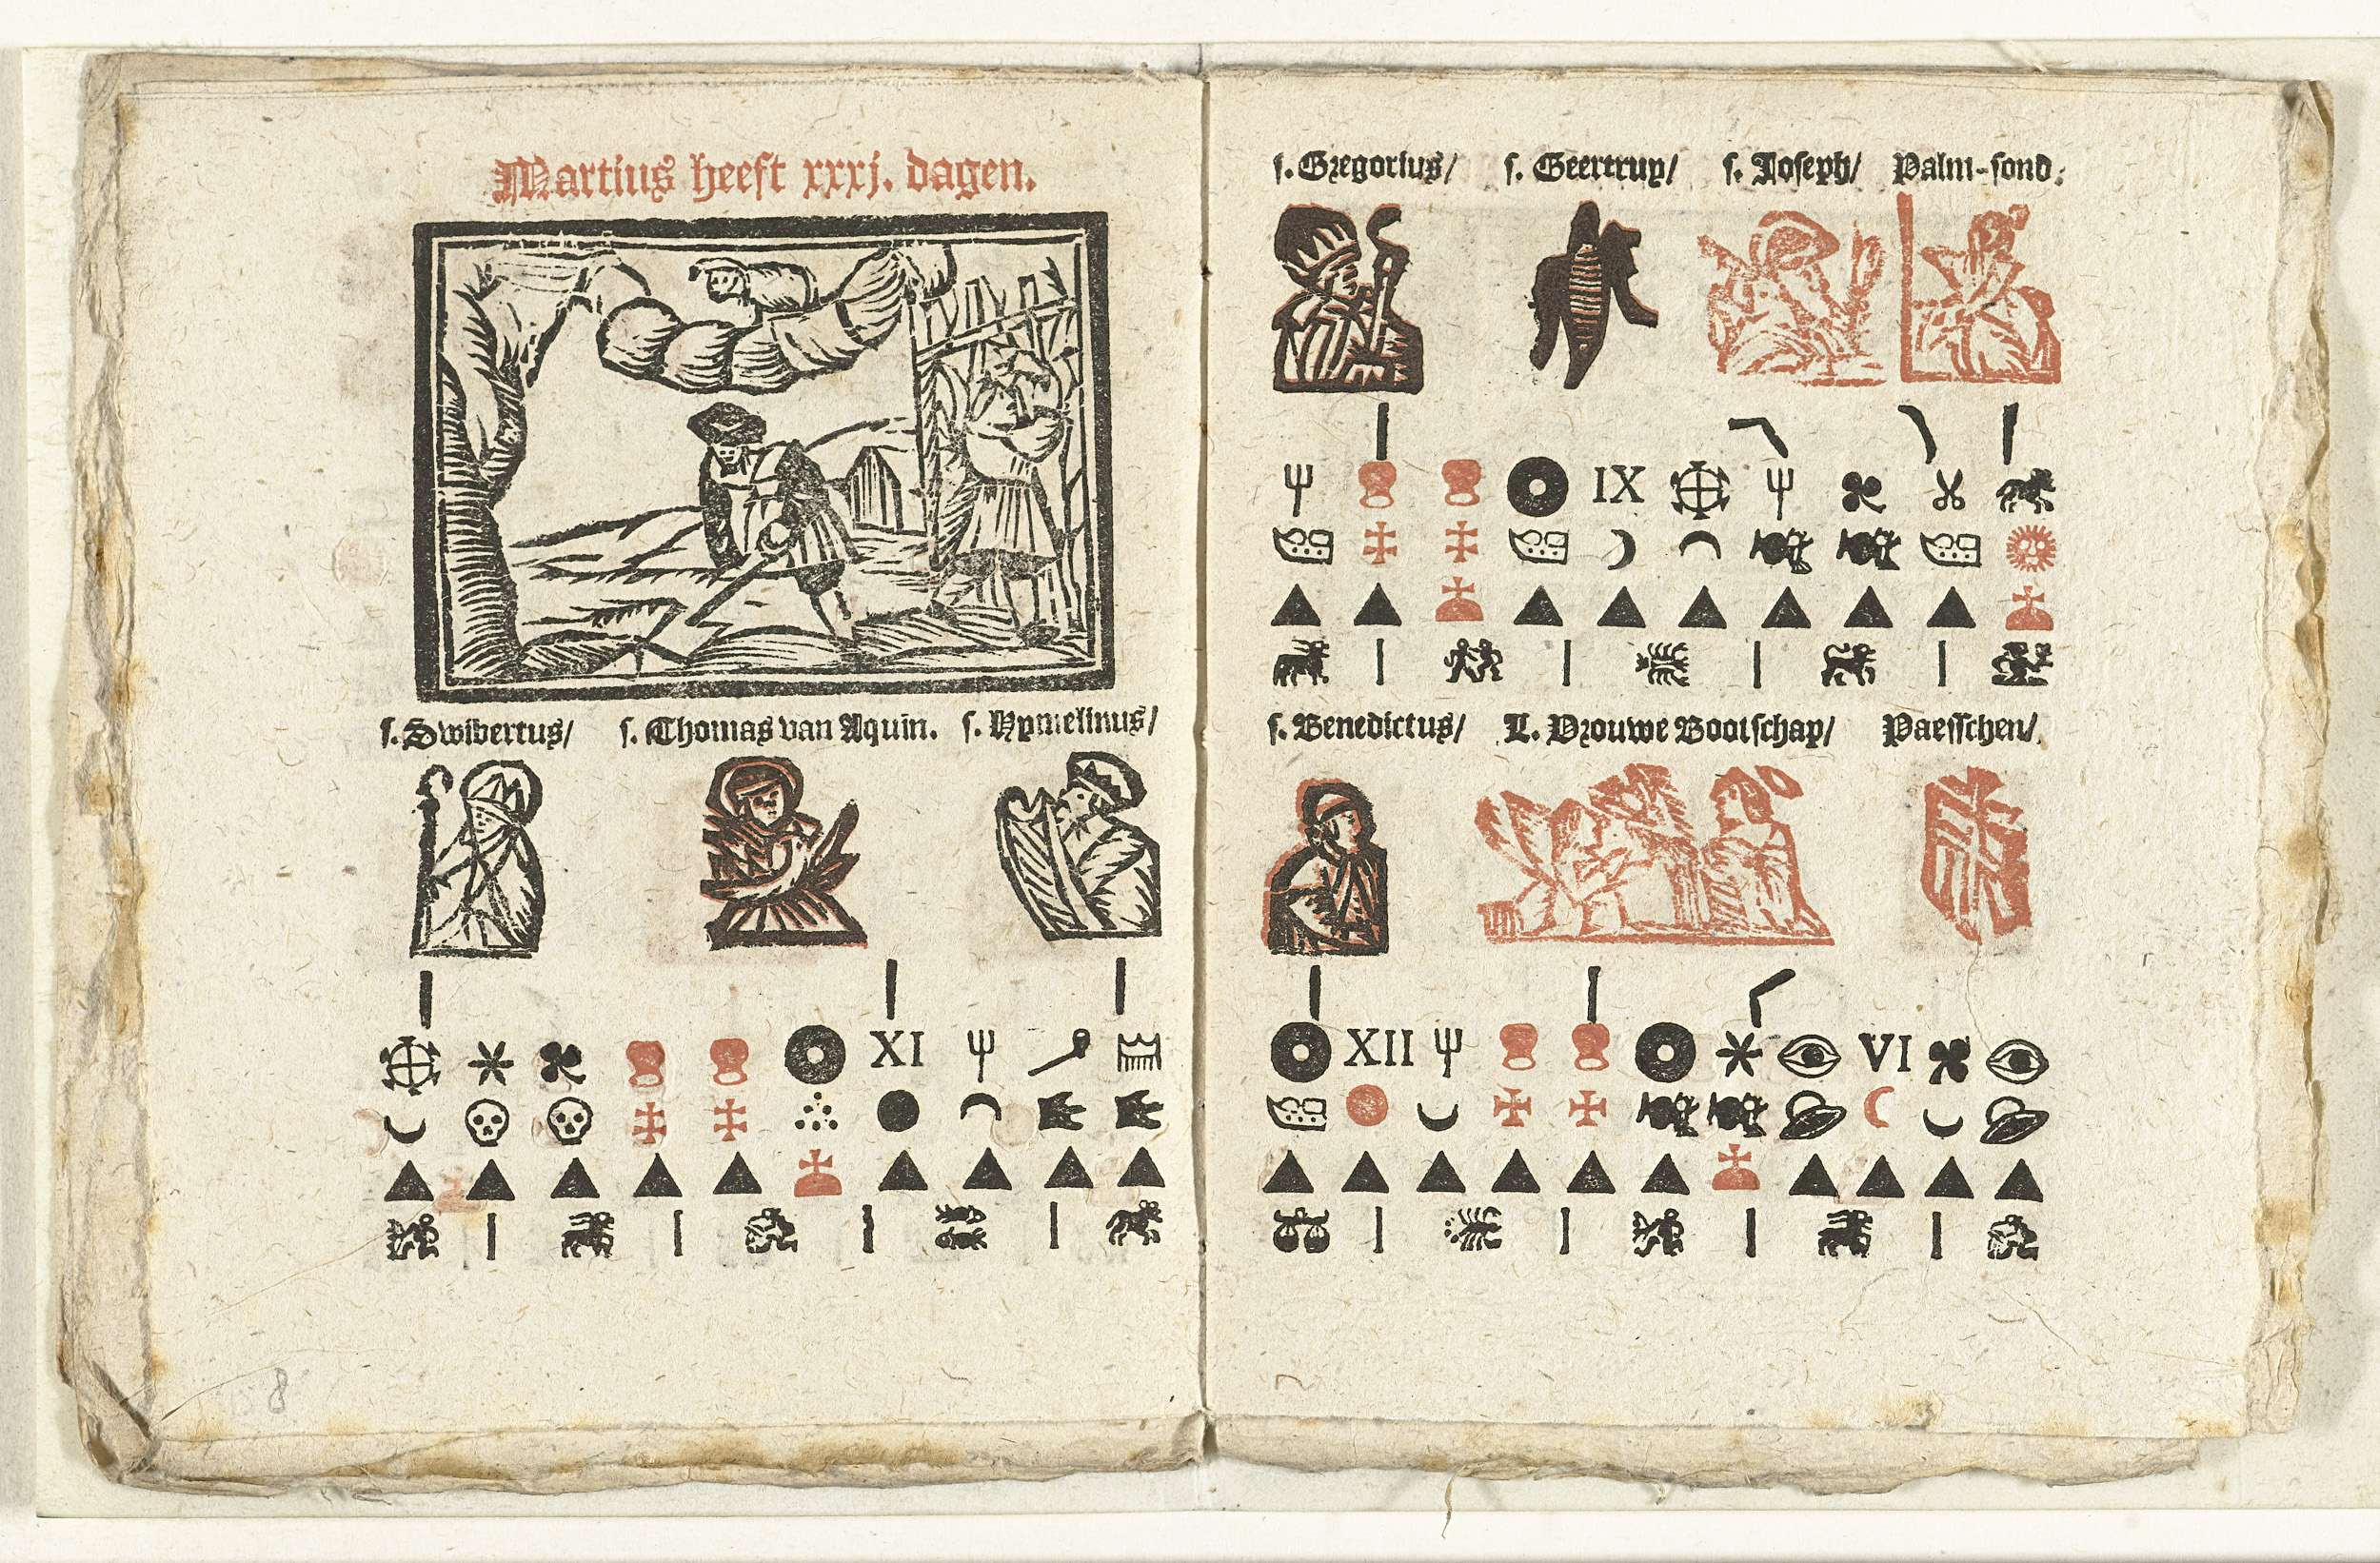 Martius heeft xxxj. dagen.
s. Swibertus/ s. Thomas van Aquin. s. Hymelinus/
XI
8
s. Gregorius/ s. Geertruy/ s. Joseph/ Palm-sond.
IX
s. Benedictus/ L. Vrouwe Bootschap/ Paesschen/
XII VI